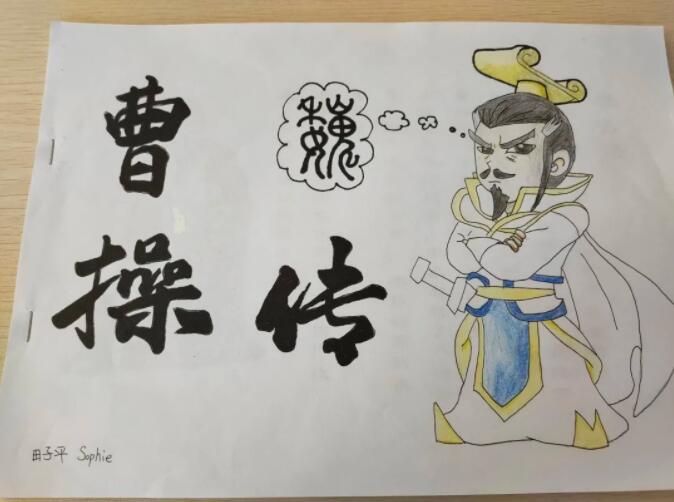 曹
操传
魏
田子平 Sophie